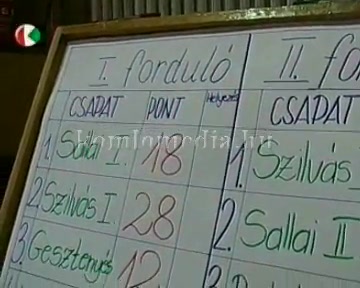 I. forduló II. fo
CSAPAT PONT Helyezés CSAPAT
1. Sallai I. 18 1. Szilvás I
2. Szilvás I. 28 2. Sallai II
3. Gesztenyés 12 3.
komlomedia.hu